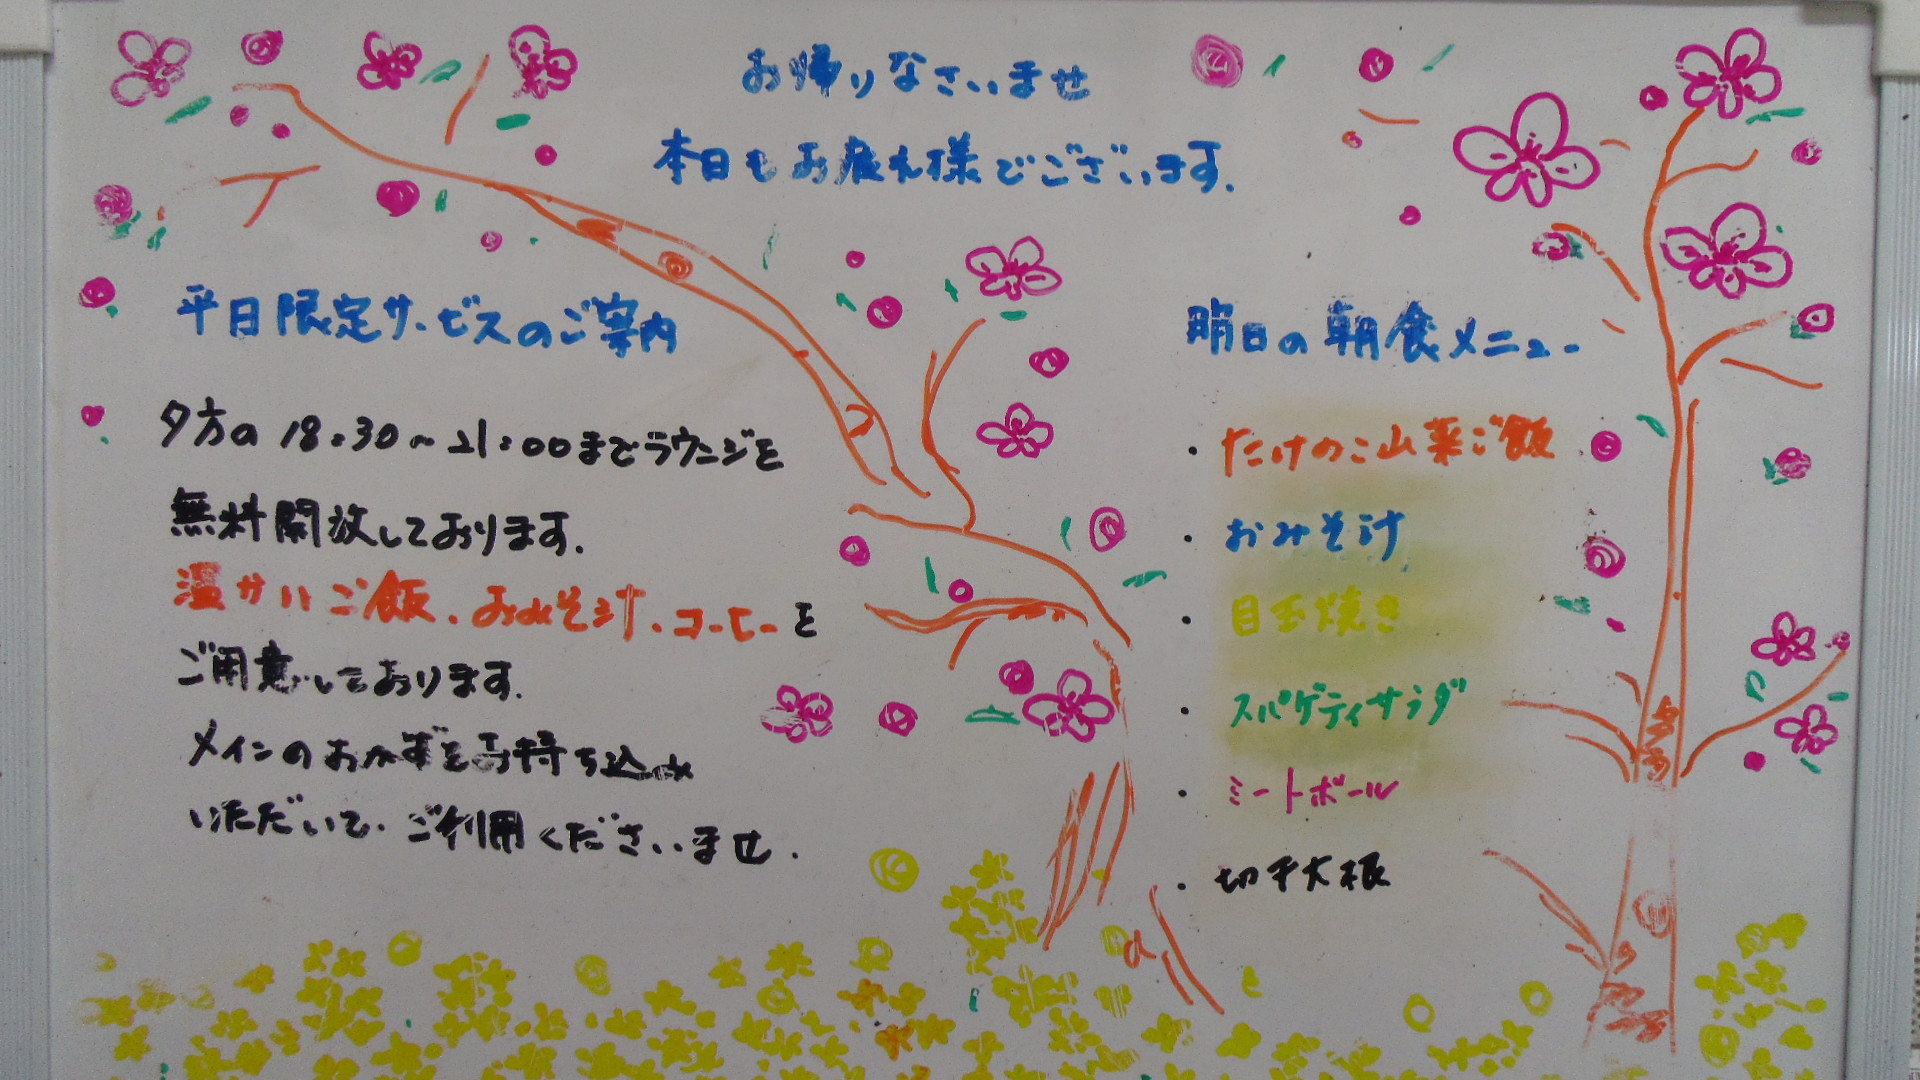 お帰りなさいませ
本日もお疲れ様でございます.
平日限定サービスのご案内
夕方の18:30~21:00までラウンジを
無料開放しております.
温かいご飯、おみそ汁、コーヒーを
ご用意しております.
メインのおかずをお持ち込み
いただいて、ご利用くださいませ.
明日の朝食メニュー
・たけのこ山菜ご飯
・おみそ汁
・目玉焼き
・スパゲティサラダ
・ミートボール
・切干大根